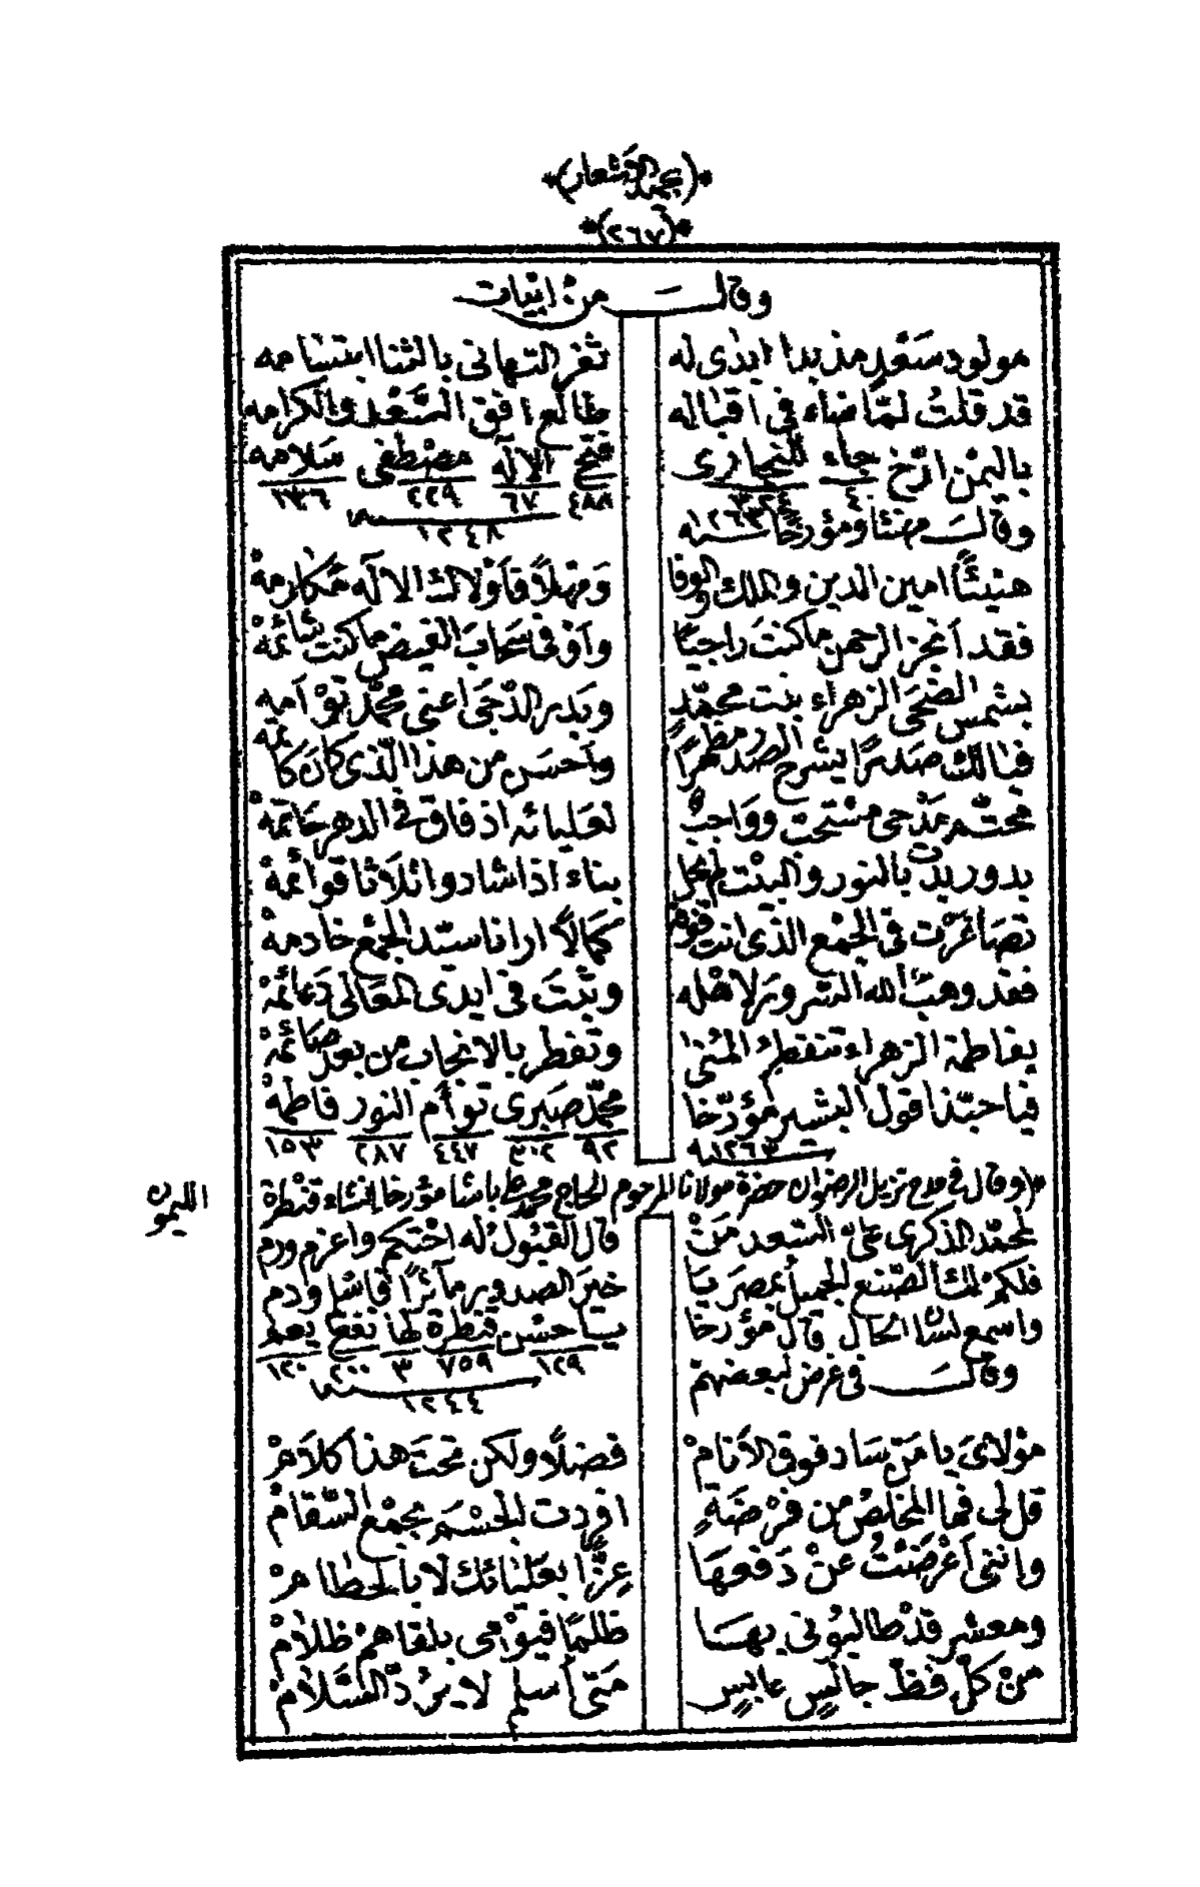 *(مجمع الأشعار)*
*(٢٦٧)*
وقال من ابيات
مولود سَعْدٍ مذ بدا ابدى له ثغر التهانى بالثنا ابتسامه
قد قلتُ لمّا ضاء فى اقباله طالع افق السَّعْد والكرامه
باليُمْن ارّخ جاء للنجارى فتح الاله مصْطفى سَلامه
٤ ٣٢٤ ٤٨٨ ٦٧ ٢٢٩ ١٣٦
سنة ١٢٤٨
وقال مهنئا ومؤرخا سنه ١٢٦٣
هنيئًا امين الدين والملك والوفا وَمهْلاً فاَوْلاك الالَه مَكارمهْ
فقد اَنجز الرحمن ما كنتَ راجيًا واَوْفى سَحابَ الفيض ما كنت شائمهْ
بشمس الضحَى الزهراء بنت محمّدٍ وبَدر الدّجَى اعنى محمّد تَوْامه
فيا لك صَدرًا يشرح الصدر مظهرًا واَحسَن من هذا الّذى كانَ كاتمه
محتّم مَدْحى مسْتحق وواجبٌ لعَليائه اذ فاق فى الدهر حَاتمهْ
بدور بدت بالنور والبيْت لم يحل بناء اذا شاد وا ثلاَثا قوائمهْ
تصَاغرْت فى الجمْع الذى انت فوقهم كمَالاً ارانا سيّد الجمْع خادمهْ
فقد وهبَ الله السّرورَ لاهْله وثبّتَ فى ايدى المعَالى دَعائمهْ
بفاطمة الزهراء تنفطرُ المُنى وتفطر بالانجاب من بعد صَائمهْ
فيا حبّذا قول البشير مؤرّخا محمّد صَبرى توأم النور فاطمهْ
سنة ١٢٦٣ ٩٢ ٣٠٢ ٤٤٧ ٢٨٧ ١٥٣
*(وقال فى مدح نزيل الرضوان حضرة مولانا المرحوم الحاج محمد على باشا مؤرخا إنشاء قنطرة
الليمون
لمحمّد الذكرى علىّ السّعد مَنْ قال القبُول له احْتكم واعزم ورم
فلكمْ لك الصّنع الجميل بمصرَ يَا خيرَ الصدور مآثرًا فاسْلم ودم
واسمع لسَان الحال قال مؤرخا يا حسْن قنطرة لها نفع يعم
١٢٩ ٧٥٩ ٣ ٢٠٠ ١٢٠
سنة ١٢٤٤
وقال فى غرض لبعضهم
موْلاىَ يا مَنْ سَاد فوق الاَنامْ فضلاً ولكن تحتَ هذا كلاَمْ
قل لى فما المخلصُ من فرْضَةٍ افردت الجسْم بجمْع السّقامْ
واننى اَعْرضَتْ عنْ دَفعهَا عِزًّا بعَليائك لا بالحطامْ
ومعشر قدْ طالبُوْنى بهَا ظلمًا فيوْمى بلقاهمْ ظلاَمْ
منْ كلّ فظّ جالسٍ عابسٍ مَتَى اُسَلم لا يرُدّ السَّلاَمْ